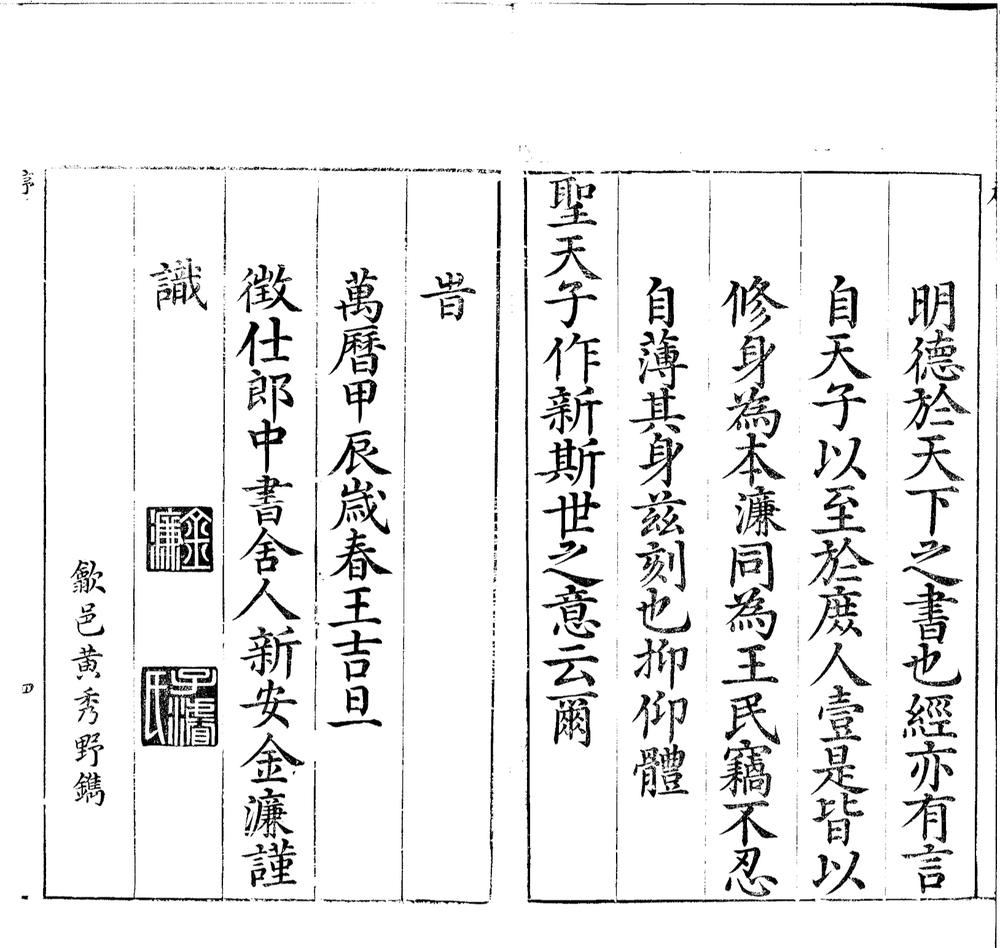 明德於天下之書也經亦有言
自天子以至於庻人壹是皆以
修身為本濂同為王民竊不忍
自薄其身茲刻也抑仰體
聖天子作新斯世之意云爾
旹
萬曆甲辰歲春王吉旦
徵仕郎中書舍人新安金濂謹
識
金濂
歙邑黃秀野鐫
序
四